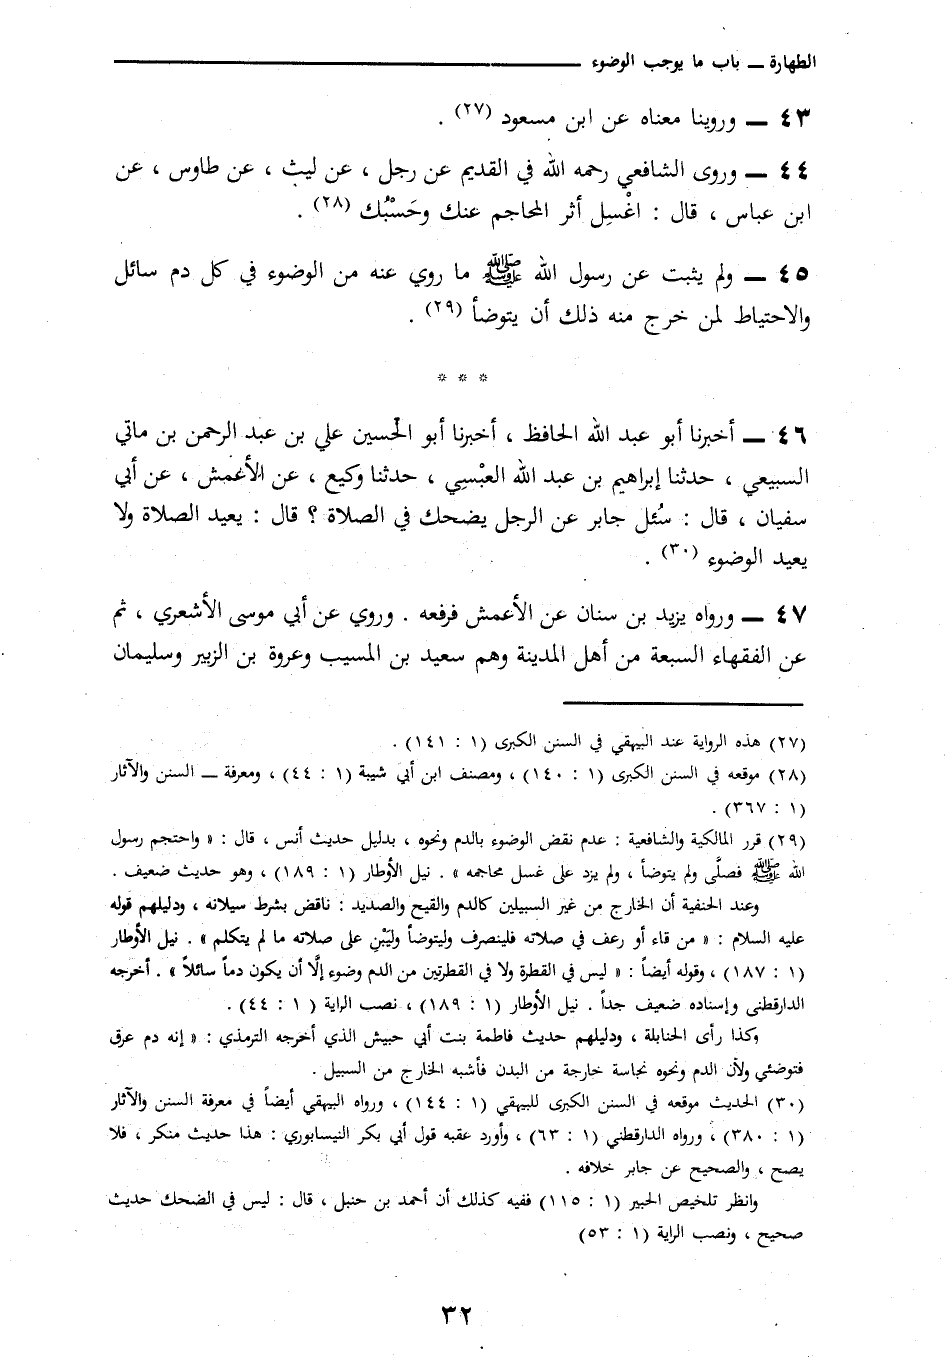 الطهارة ــ باب ما يوجب الوضوء
٤٣ ــ وروينا معناه عن ابن مسعود (٢٧) .
٤٤ ــ وروى الشافعي رحمه الله في القديم عن رجل ، عن ليث ، عن طاوس ، عن
ابن عباس ، قال : اغْسِل أثر المحاجم عنك وحَسْبُك (٢٨) .
٤٥ ــ ولم يثبت عن رسول الله ﷺ ما روي عنه من الوضوء في كل دم سائل
والاحتياط لمن خرج منه ذلك أن يتوضأ (٢٩) .
* * *
٤٦ ــ أخبرنا أبو عبد الله الحافظ ، أخبرنا أبو الحسين علي بن عبد الرحمن بن ماتي
السبيعي ، حدثنا إبراهيم بن عبد الله العبْسِي ، حدثنا وكيع ، عن الأعمش ، عن أبي
سفيان ، قال : سُئل جابر عن الرجل يضحك في الصلاة ؟ قال : يعيد الصلاة ولا
يعيد الوضوء (٣٠) .
٤٧ ــ ورواه يزيد بن سنان عن الأعمش فرفعه . وروي عن أبي موسى الأشعري ، ثم
عن الفقهاء السبعة من أهل المدينة وهم سعيد بن المسيب وعروة بن الزبير وسليمان
(٢٧) هذه الرواية عند البيهقي في السنن الكبرى (١ : ١٤١) .
(٢٨) موقعه في السنن الكبرى (١ : ١٤٠) ، ومصنف ابن أبي شيبة (١ : ٤٤) ، ومعرفة ــ السنن والآثار
(١ : ٣٦٧) .
(٢٩) قرر المالكية والشافعية : عدم نقض الوضوء بالدم ونحوه ، بدليل حديث أنس ، قال : « واحتجم رسول
الله ﷺ فصلَّى ولم يتوضأ ، ولم يزد على غسل محاجمه » . نيل الأوطار (١ : ١٨٩) ، وهو حديث ضعيف .
وعند الحنفية أن الخارج من غير السبيلين كالدم والقيح والصديد : ناقض بشرط سيلانه ، ودليلهم قوله
عليه السلام : « من قاء أو رعف في صلاته فلينصرف وليتوضأ وليَبْنِ على صلاته ما لم يتكلم » . نيل الأوطار
(١ : ١٨٧) ، وقوله أيضاً : « ليس في القطرة ولا في القطرتين من الدم وضوء إلَّا أن يكون دماً سائلاً » . أخرجه
الدارقطني وإسناده ضعيف جداً . نيل الأوطار (١ : ١٨٩) ، نصب الراية ( ١ : ٤٤) .
وكذا رأى الحنابلة ، ودليلهم حديث فاطمة بنت أبي حبيش الذي أخرجه الترمذي : « إنه دم عرق
فتوضئي ولأن الدم ونحوه نجاسة خارجة من البدن فأشبه الخارج من السبيل .
(٣٠) الحديث موقعه في السنن الكبرى للبيهقي (١ : ١٤٤) ، ورواه البيهقي أيضاً في معرفة السنن والآثار
(١ : ٣٨٠) ، ورواه الدارقطني (١ : ٦٣) ، وأورد عقبه قول أبي بكر النيسابوري : هذا حديث منكر ، فلا
يصح ، والصحيح عن جابر خلافه .
وانظر تلخيص الحبير (١ : ١١٥) ففيه كذلك أن أحمد بن حنبل ، قال : ليس في الضحك حديث
صحيح ، ونصب الراية (١ : ٥٣)
٣٢